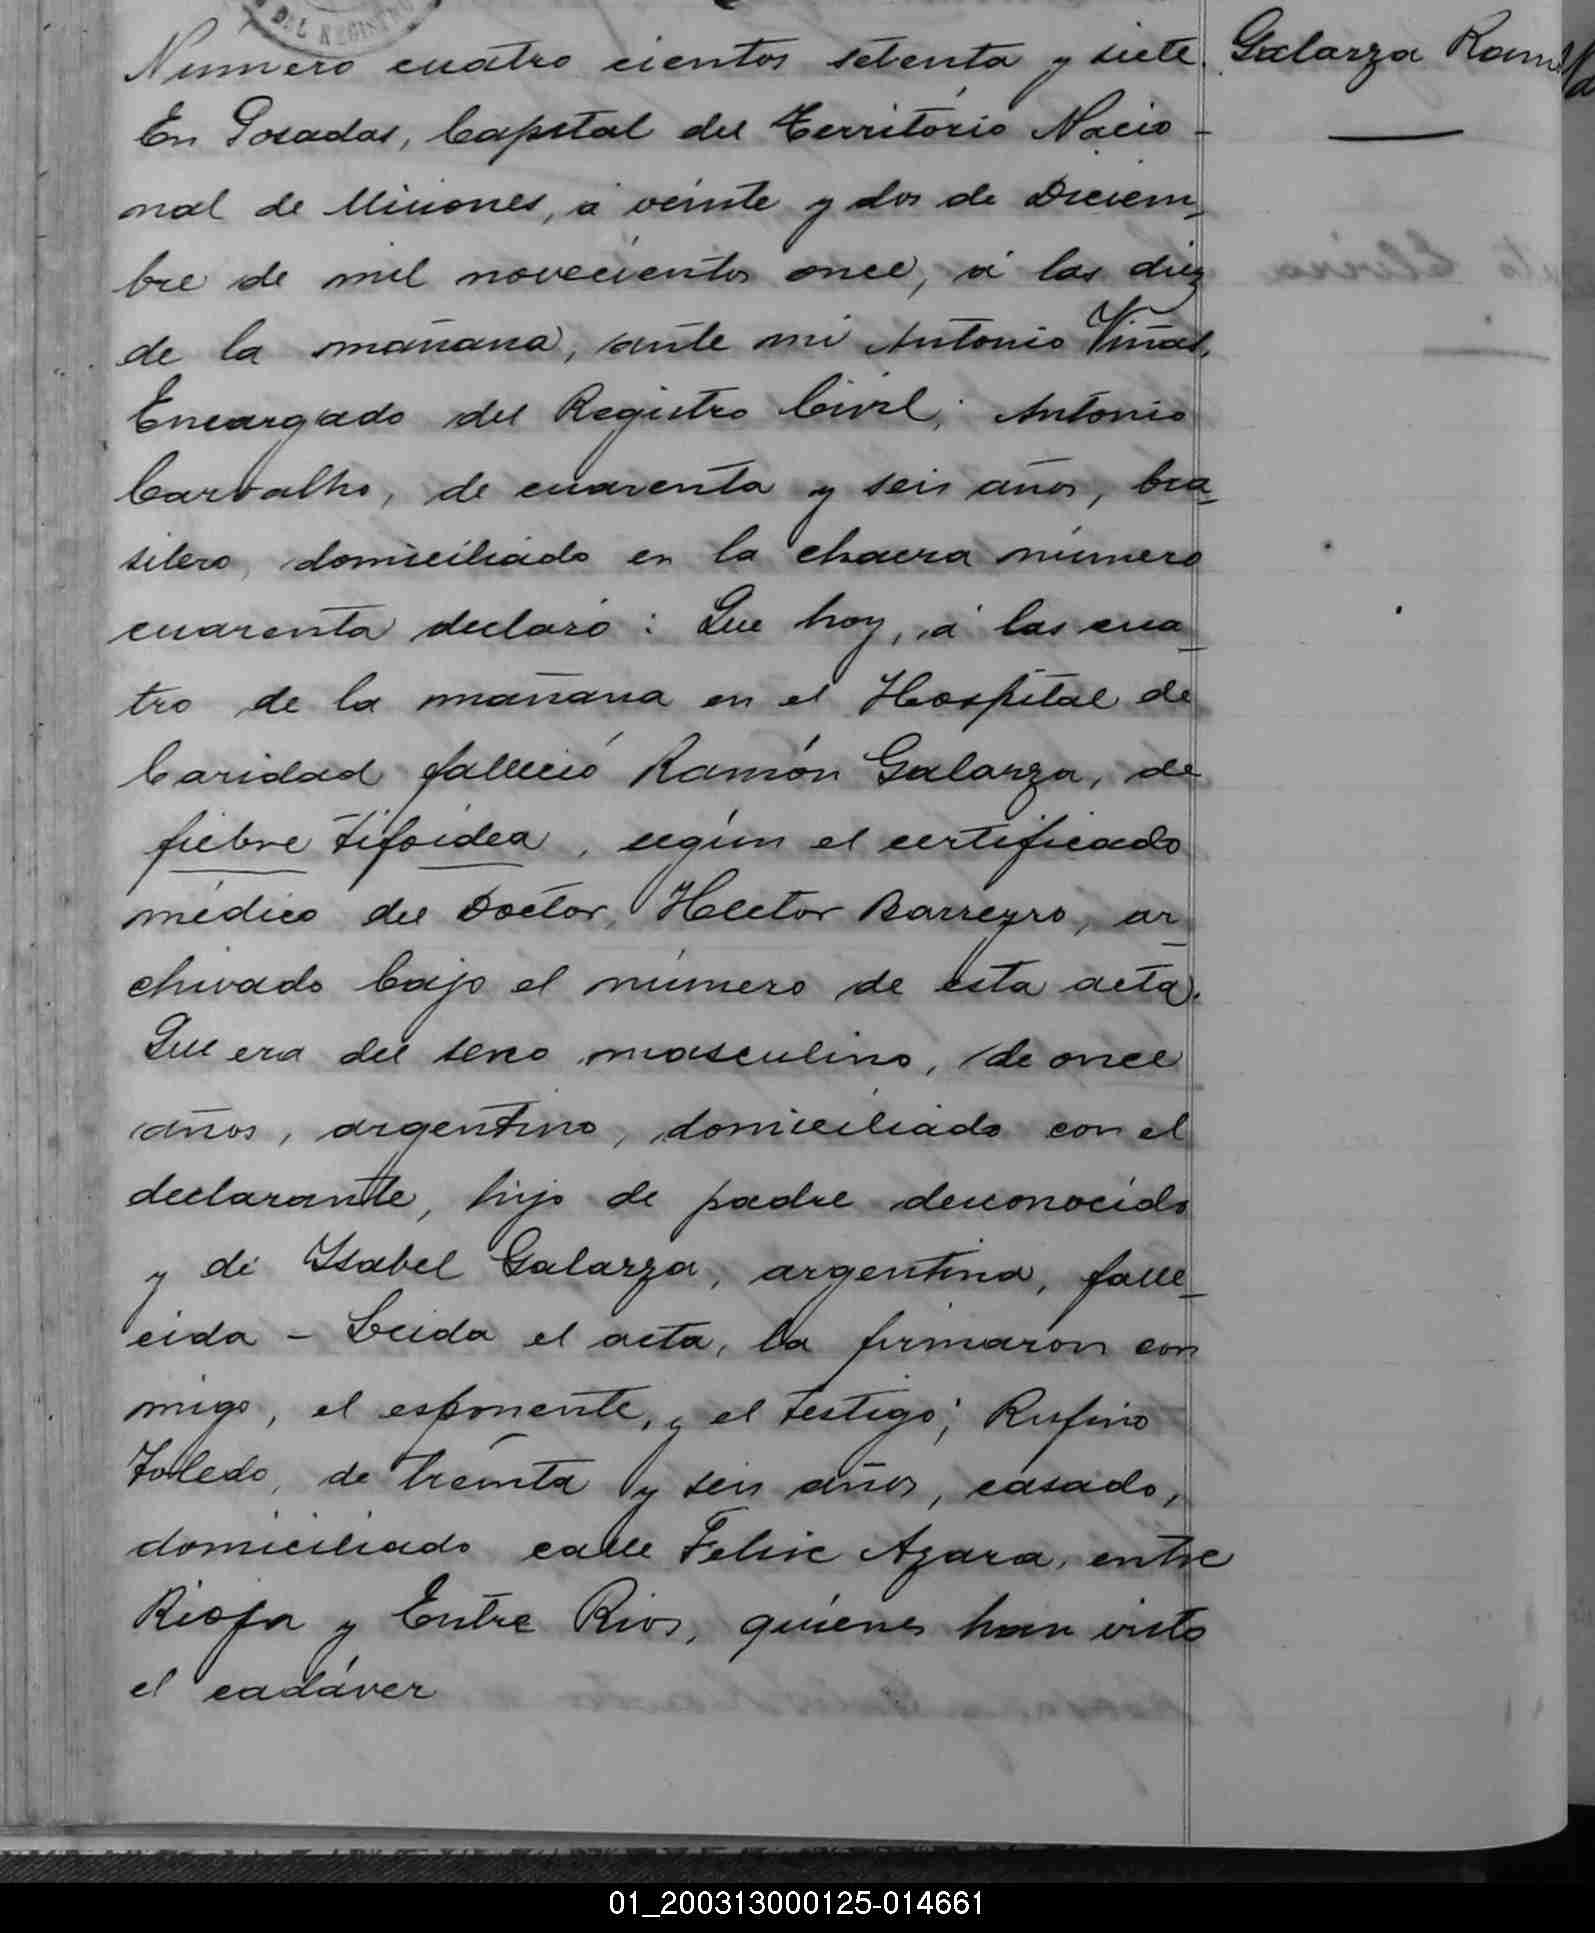 DEL REGISTRO
Numero cuatro cientos setenta y siete.
Galarza Ramón
En Posadas, Capital del Territorio Nacio-
nal de Misiones, á veinte y dos de Diciem-
bre de mil novecientos once, á las diez
de la mañana, ante mi Antonio Viñas,
Encargado del Registro Civil; Antonio
Carvalho, de cuarenta y seis años, bra-
silero, domiciliado en la chacra número
cuarenta declaró: Que hoy, á las cua-
tro de la mañana en el Hospital de
Caridad falleció Ramón Galarza, de
fiebre tifoidea, según el certificado
médico del Doctor, Hector Barreyro, ar-
chivado bajo el número de esta acta.
Que era del sexo masculino, de once
años, argentino, domiciliado con el
declarante, hijo de padre desconocido
y de Isabel Galarza, argentina, falle-
cida - Leida el acta, la firmaron con
migo, el esponente, y el testigo; Rufino
Toledo, de treinta y seis años, casado,
domiciliado calle Felix Azara, entre
Rioja y Entre Rios, quienes han visto
el cadáver
01_200313000125-014661